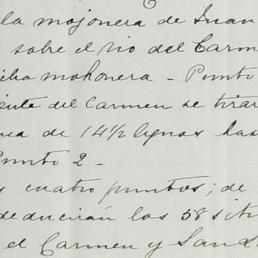 la mojonera de Juan
sobre el rio del Carm
cha mohonera - Punto
iente del Carmen se tirar
ea de 14½ lignas has
Punto 2 -
s cuatro puntos; de
deducirán los 58 sit
el Carmen y San